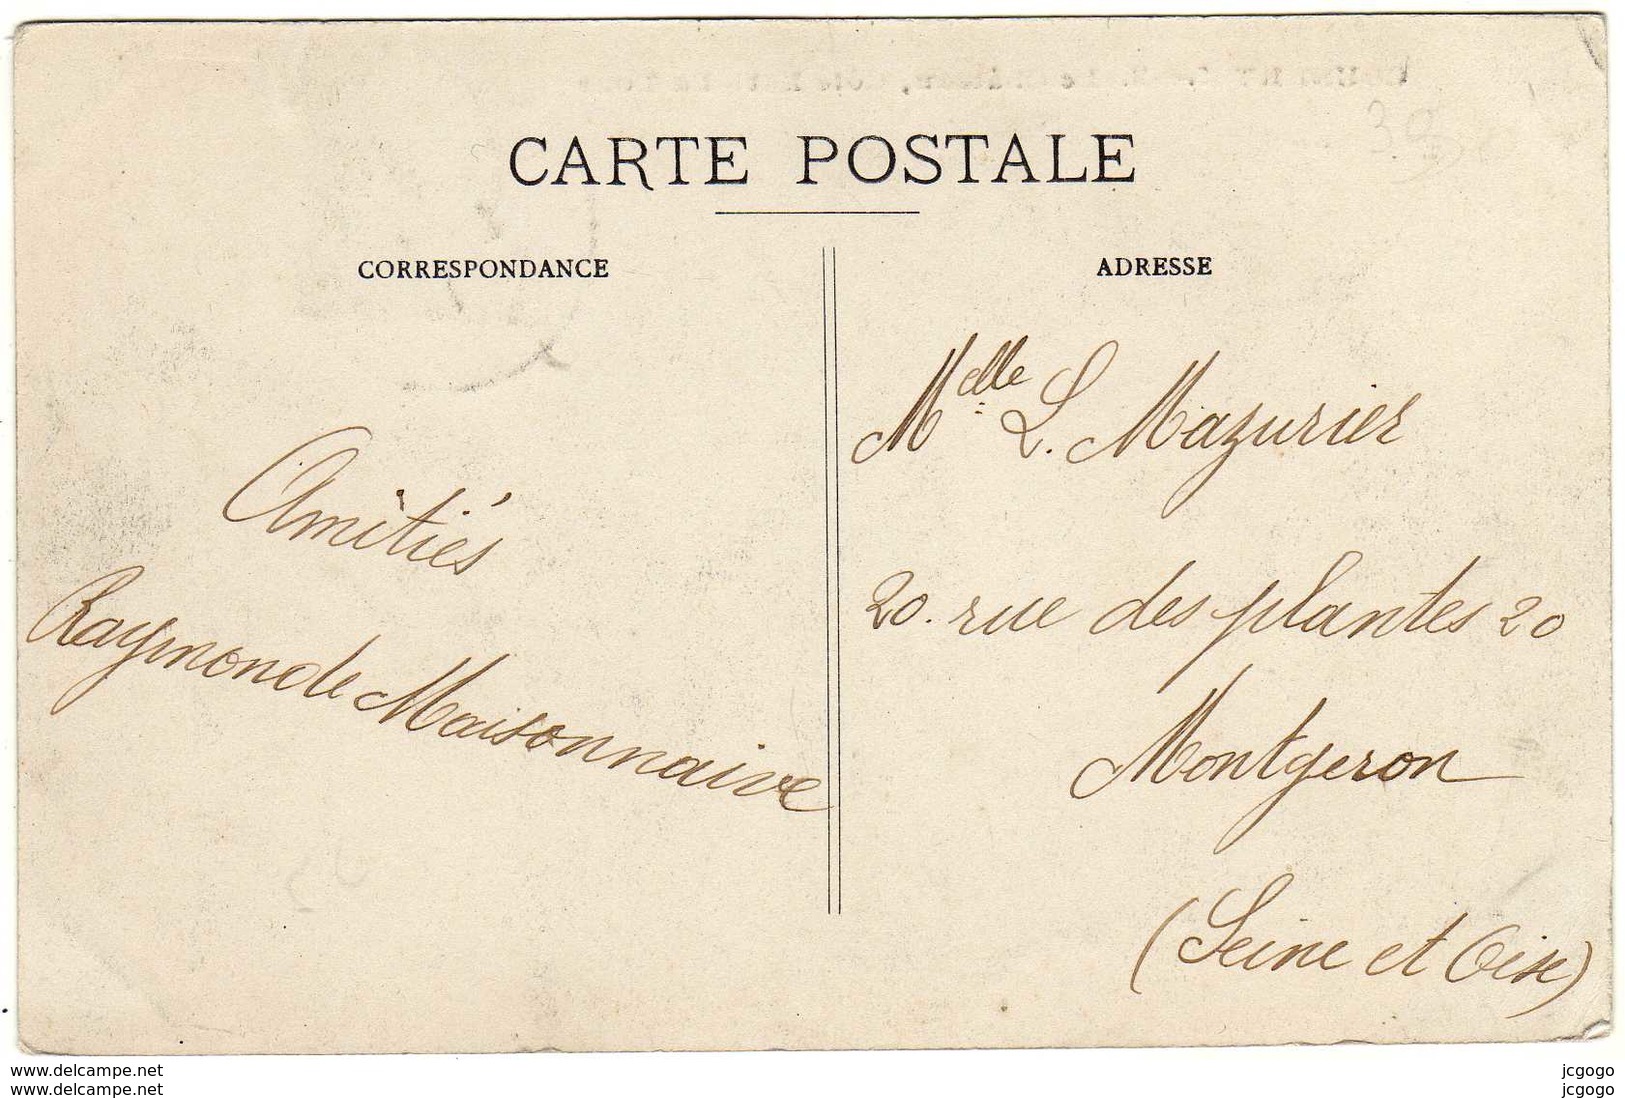 CARTE POSTALE
CORRESPONDANCE
Amitiés
Raymonde Maisonnaive
ADRESSE
Melle L. Mazurier
20. rue des plantes 20
Montgeron
(Seine et Oise)
30
www.delcampe.net
www.delcampe.net
jcgogo
jcgogo